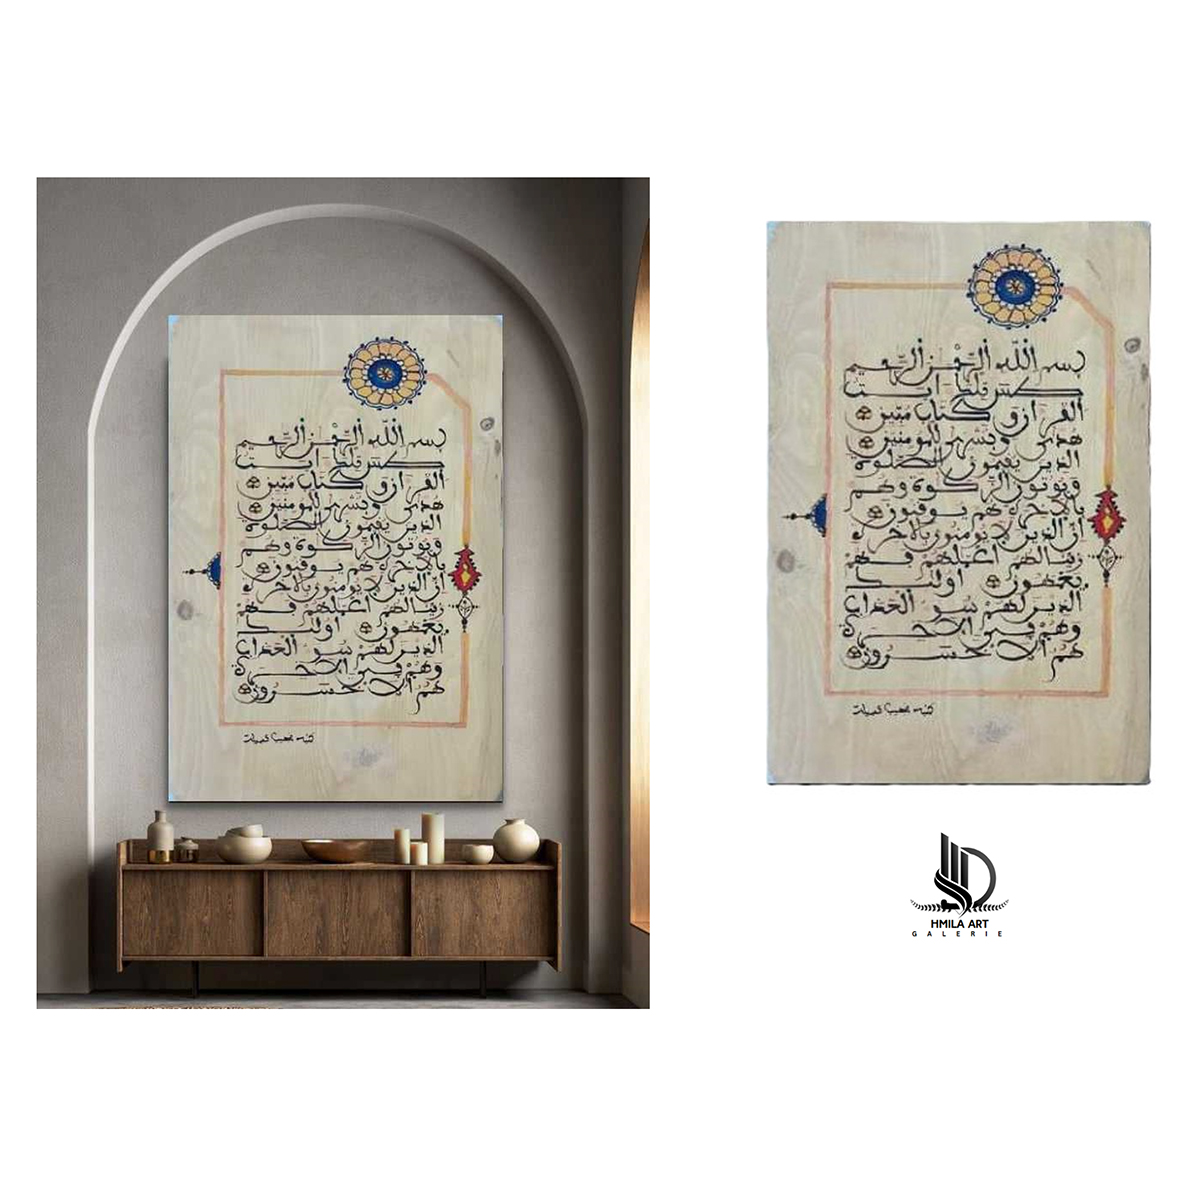 بسم الله الرحمن الرحيم
طس تلك ايت
القران وكتاب مبين
هدى وبشرى للمومنين
الذين يقيمون الصلوة
ويوتون الزكوة وهم
بالاخرة هم يوقنون
ان الذين لا يومنون بالاخرة
زينا لهم اعملهم فهم
يعمهون اولئك
الذين لهم سو العذاب
وهم في الاخرة
هم الاخسرون
كتبه
بسم الله الرحمن الرحيم
طس تلك ايت
القران وكتاب مبين
هدى وبشرى للمومنين
الذين يقيمون الصلوة
ويوتون الزكوة وهم
بالاخرة هم يوقنون
ان الذين لا يومنون بالاخرة
زينا لهم اعملهم فهم
يعمهون اولئك
الذين لهم سو العذاب
وهم في الاخرة
هم الاخسرون
كتبه
HMILA ART
GALERIE